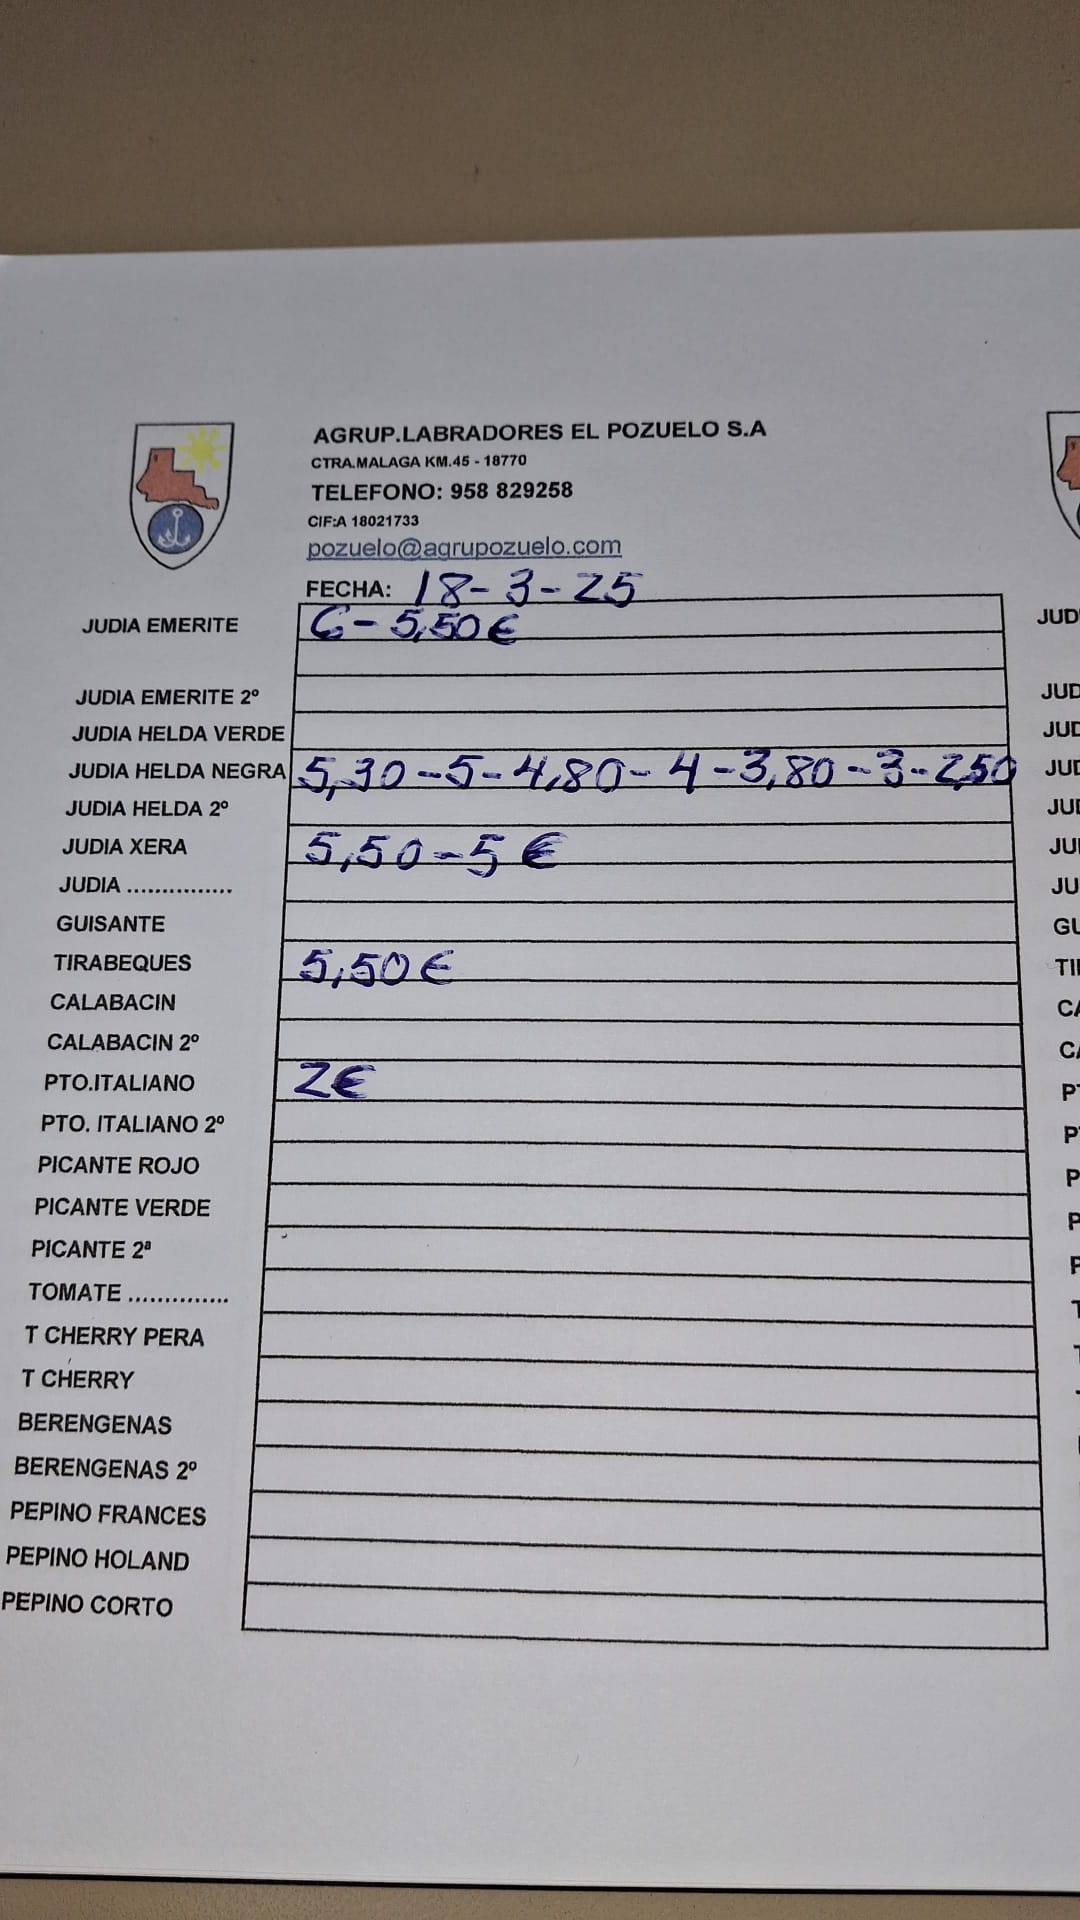 AGRUP.LABRADORES EL POZUELO S.A
CTRA.MALAGA KM.45 - 18770
TELEFONO: 958 829258
CIF:A 18021733
pozuelo@agrupozuelo.com
FECHA: 18-3-25
JUDIA EMERITE 6-5,50€
JUDIA EMERITE 2º
JUDIA HELDA VERDE
JUDIA HELDA NEGRA 5,30-5-4,80-4-3,80-3-2,50
JUDIA HELDA 2º
JUDIA XERA 5,50-5€
JUDIA ...............
GUISANTE
TIRABEQUES 5,50€
CALABACIN
CALABACIN 2º
PTO.ITALIANO 2€
PTO. ITALIANO 2º
PICANTE ROJO
PICANTE VERDE
PICANTE 2ª
TOMATE ..............
T CHERRY PERA
T CHERRY
BERENGENAS
BERENGENAS 2º
PEPINO FRANCES
PEPINO HOLAND
PEPINO CORTO